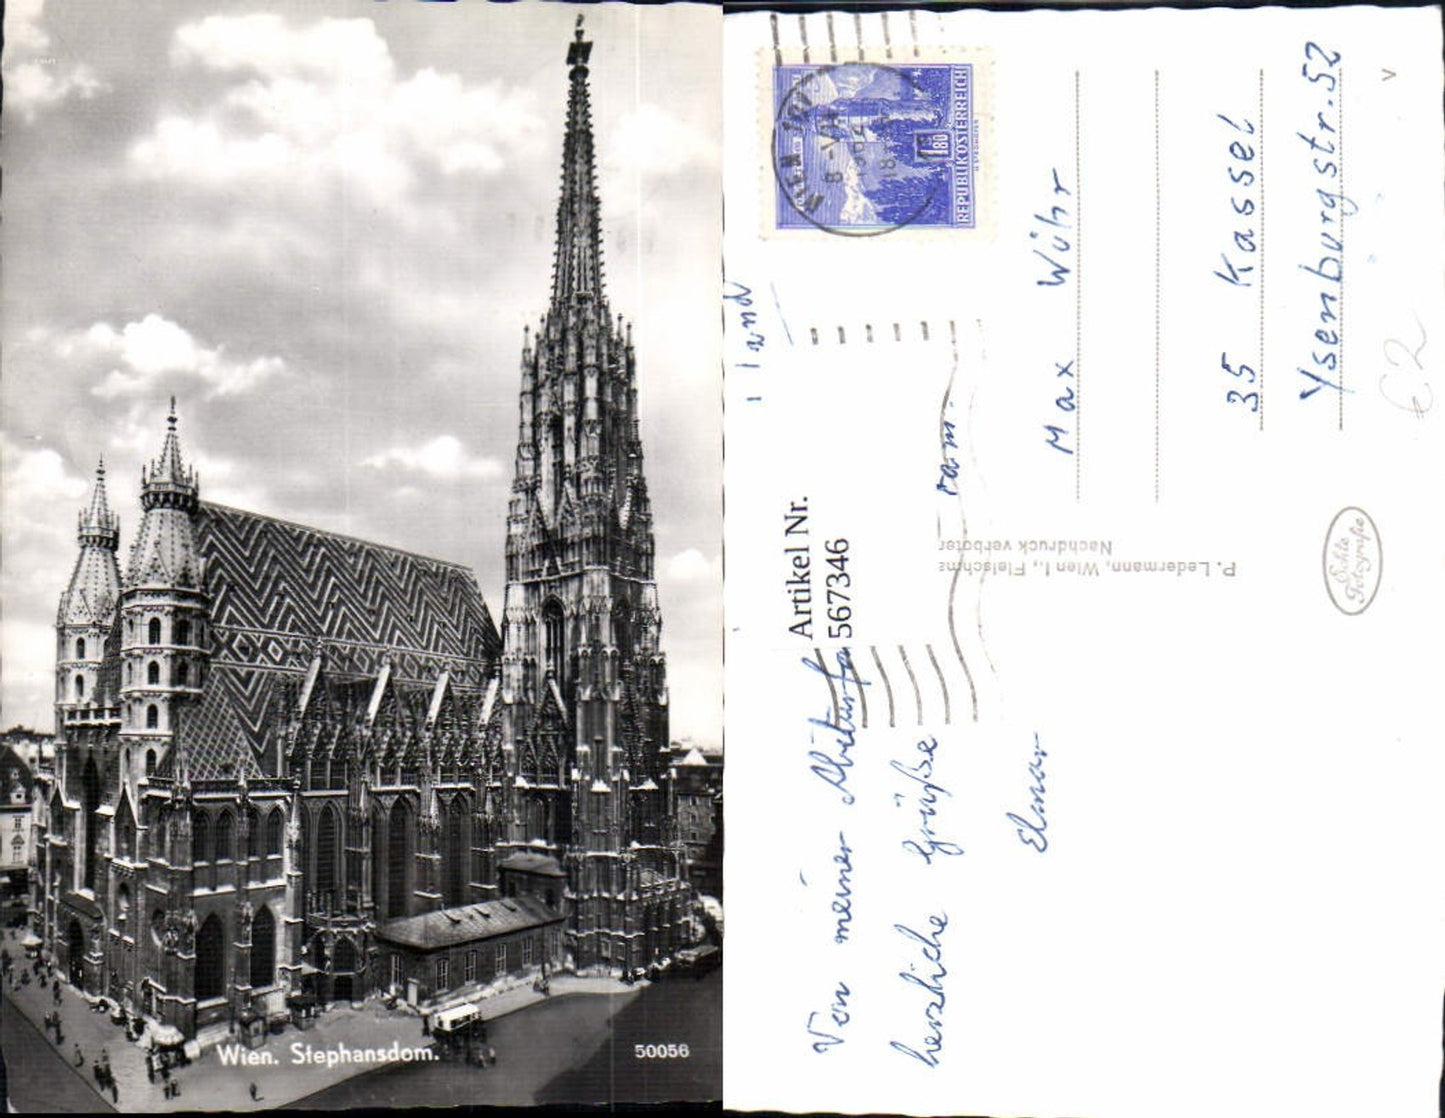 Wien. Stephansdom.
50056
REPUBLIK ÖSTERREICH
1.80
WIEN
8-VII
18
Von meiner Abiturfa
herzliche Grüße
Elmar
Artikel Nr.
567346
P. Ledermann, Wien I., Fleischm
Nachdruck verboten
Echte
Fotografie
Max Wühr
35 Kassel
Ysenburgstr. 52
€2
V